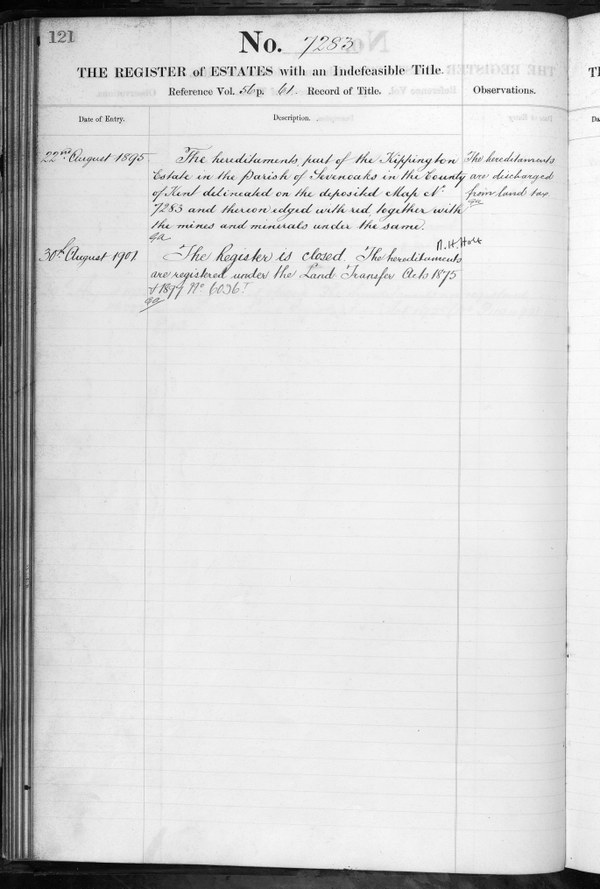 121
No. 7283
THE REGISTER of ESTATES with an Indefeasible Title.
Reference Vol. 56 p. 61. Record of Title.
Observations.
Date of Entry.
Description.
22nd August 1895
The hereditaments, part of the Kippington
Estate in the Parish of Sevenoaks in the County
of Kent delineated on the deposited Map No.
7283 and thereon edged with red, together with
the mines and minerals under the same.
The hereditaments
are discharged
from land tax
30th August 1901
The Register is closed. The hereditaments
are registered under the Land Transfer Acts 1875
& 1897 No. 6036